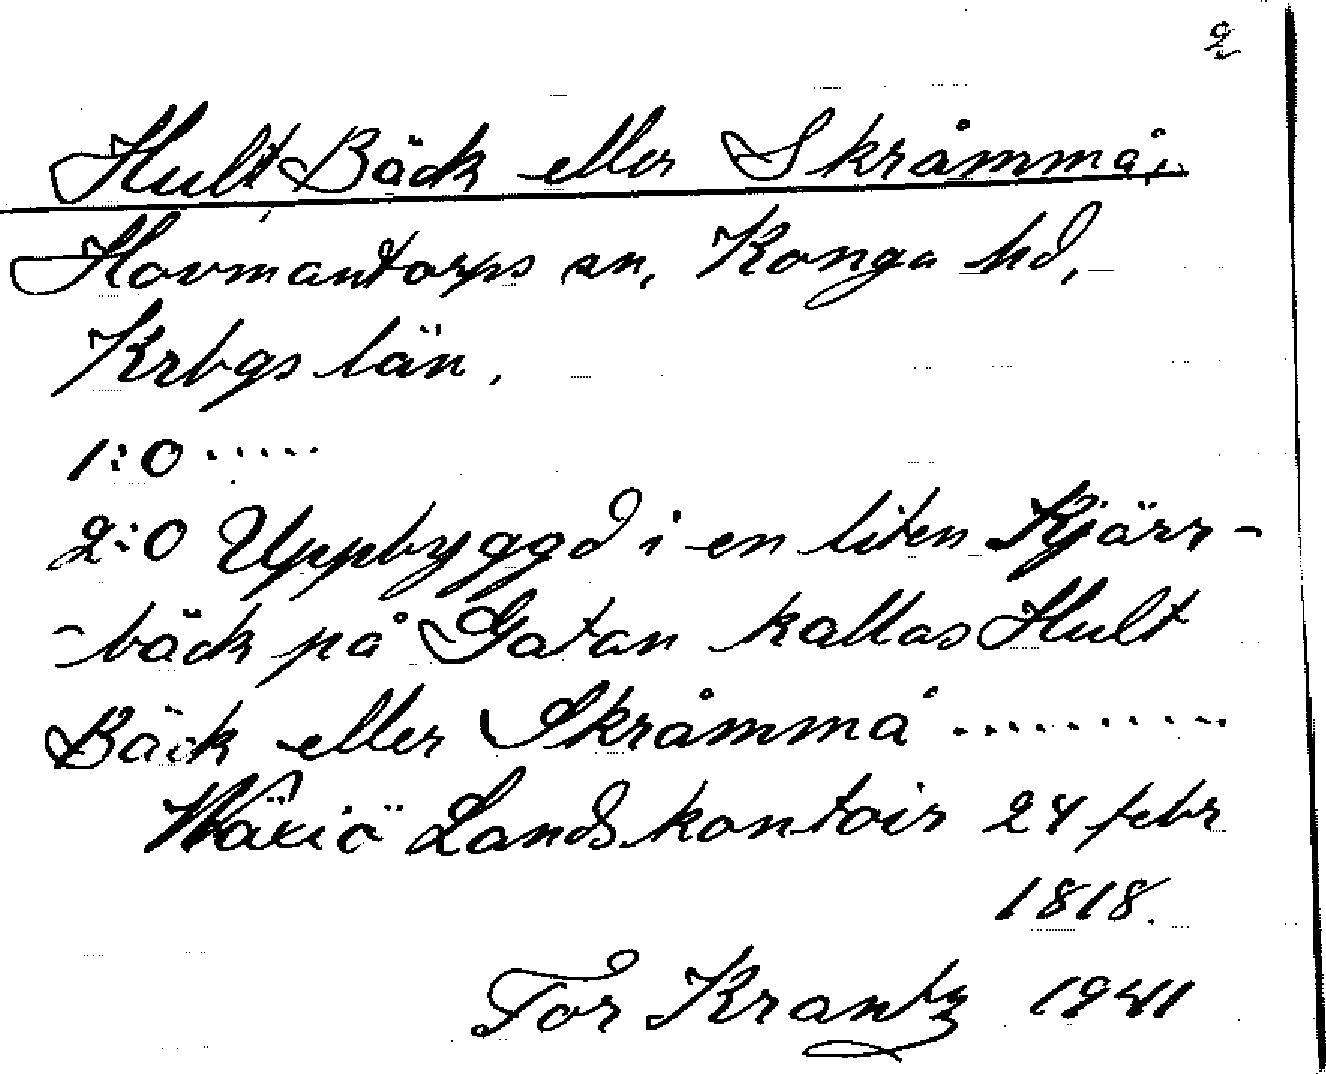 2
Hult Bäck eller Skråmmå,
Hovmantorps sn, Konga hd,
Krbgs län.
1:0 .....
2:0 Uppbyggd i en liten Kjärr-
-bäck på Gatan kallas Hult
Bäck eller Skråmmå .........
Wäxiö Landskontoir 24 febr
1818.
Tor Krantz 1941